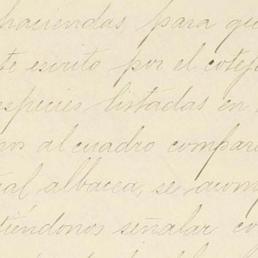 haciendas para qu
te escrito por el cotej
especies listadas en
nos al cuadro compar
al albacea, se acom
tiéndonos señalar co